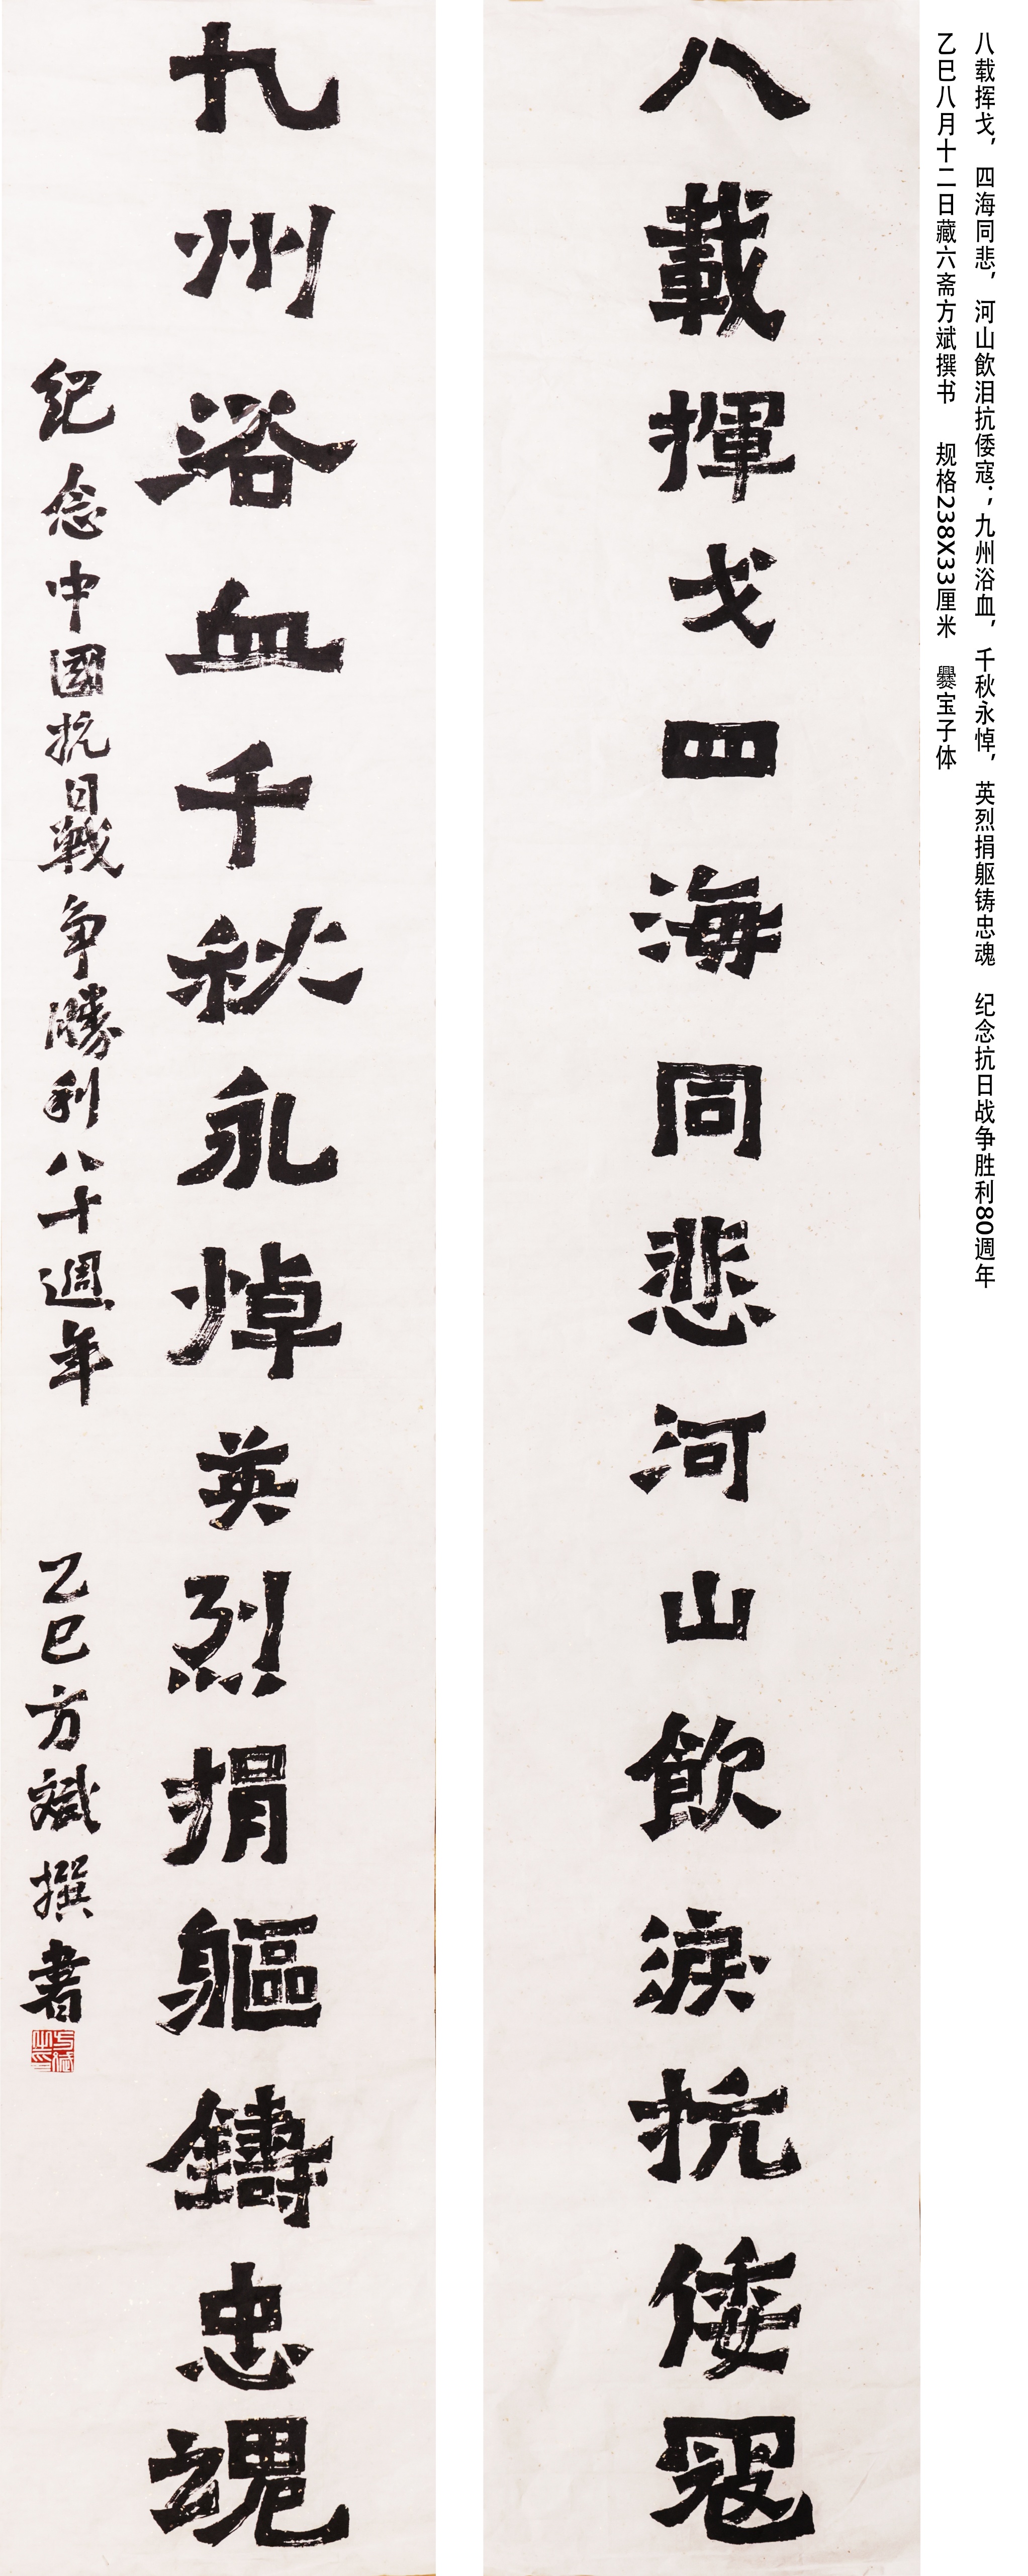 八载挥戈，四海同悲，河山飲泪抗倭寇；九州浴血，千秋永悼，英烈捐躯铸忠魂　纪念抗日战争胜利80週年
乙巳八月十二日藏六斋方斌撰书　规格238X33厘米　爨宝子体
八載揮戈四海同悲河山飲淚抗倭寇
九州浴血千秋永悼英烈捐軀鑄忠魂
紀念中國抗日戰争勝利八十週年　乙巳方斌撰書